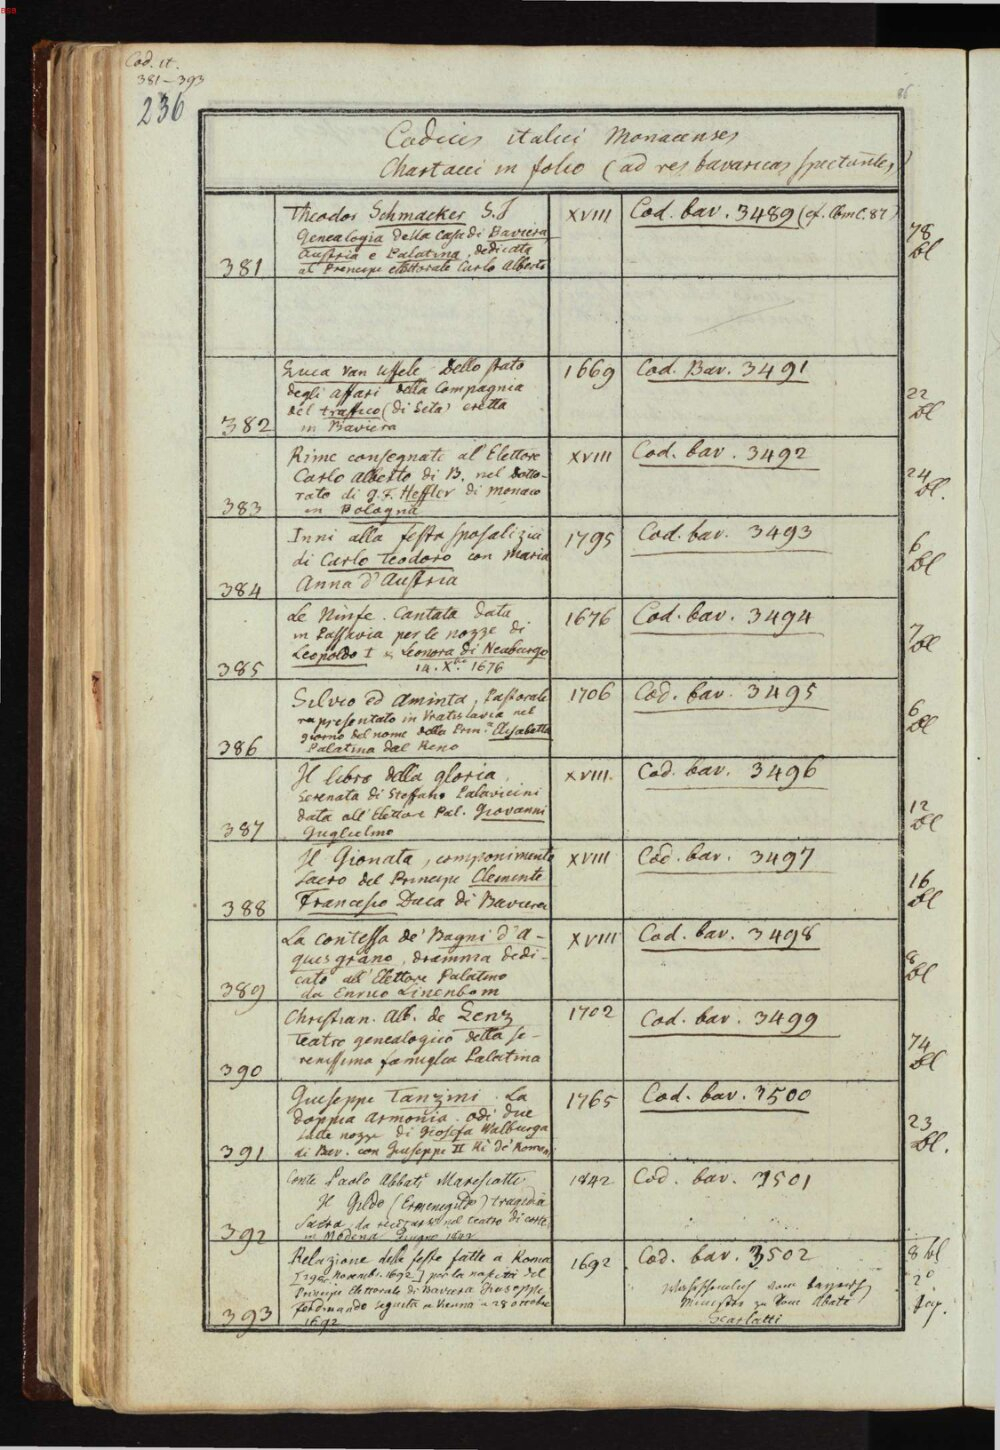 BSB
Cod. it.
381–393
236
86
Codices italici Monacenses
Chartacei in folio (ad res bavaricas spectantes)
Theodor Schmacker S.J
Genealogia della casa di Baviera
Austria e Palatina, dedicata
al Prencipe elettorale Carlo Alberto
381
XVIII
Cod. bav. 3489 (cf. Cbm C. 87)
78
bl
Luca van Uffele Dello stato
degli affari della Compagnia
del traffico (di Seta) eretta
in Baviera
382
1669
Cod. Bav. 3491
22
Bl
Rime consegnate al' Elettore
Carlo Alberto di B. nel Dotto-
rato di G. F. Heffter di Monaco
in Bologna
383
XVIII
Cod. bav. 3492
24
Bl.
Inni alla festa sposalizia
di Carlo Teodoro con Maria
Anna d'Austria
384
1795
Cod. bav. 3493
6
Bl
Le Ninfe. Cantata data
in Passavia per le nozze di
Leopoldo I & Leonora di Neoburgo
14. Xbre 1676
385
1676
Cod. bav. 3494
7
Bl
Silvio ed Aminta, Pastorale
rapresentato in Vratislavia nel
giorno del nome della Prin.a Elisabetta
Palatina dal Reno
386
1706
Cod. bav. 3495
6
Bl
Il libro della gloria,
Serenata di Steffano Palavicini
data all' Elettore Pal. Giovanni
Guglielmo
387
XVIII.
Cod. bav. 3496
12
Bl
Il Gionata, componimento
sacro del Principe Clemente
Francesco Duca di Baviera
388
XVIII
Cod. bav. 3497
16
Bl
La contessa de' Bagni d'A-
quesgrano, dramma dedi-
cato all' Elettore Palatino
da Enrico Linenborn
389
XVIII
Cod. bav. 3498
8
bl
Christian. Alb. de Lenz
Teatro genealogico della se-
renissima famiglia Palatina
390
1702
Cod. bav. 3499
74
Bl
Giuseppe Tanzini. La
doppia armonia. Odi due
sulle nozze di Giosefa Walburga
di Bav. con Giuseppe II Rè de' Romani
391
1765
Cod. bav. 3500
23
Bl.
Conte Paolo Abbati Marescotti
Il Gildo (Ermenegildo) tragedia
Sacra, da recitarsi nel teatro di corte
in Modena Giugno 1842
392
1842
Cod. bav. 3501
Relazione delle feste fatte a Roma
[29 Novemb. 1692] per la nascita del
Principe Elettorale di Baviera Giuseppe
Ferdinando seguita a Vienna a 28 ottobre
1692
393
1692
Cod. bav. 3502
Wahrscheinlich vom bayerisch
Minister zu Rom Abate
Scarlatti
8 bl
2°